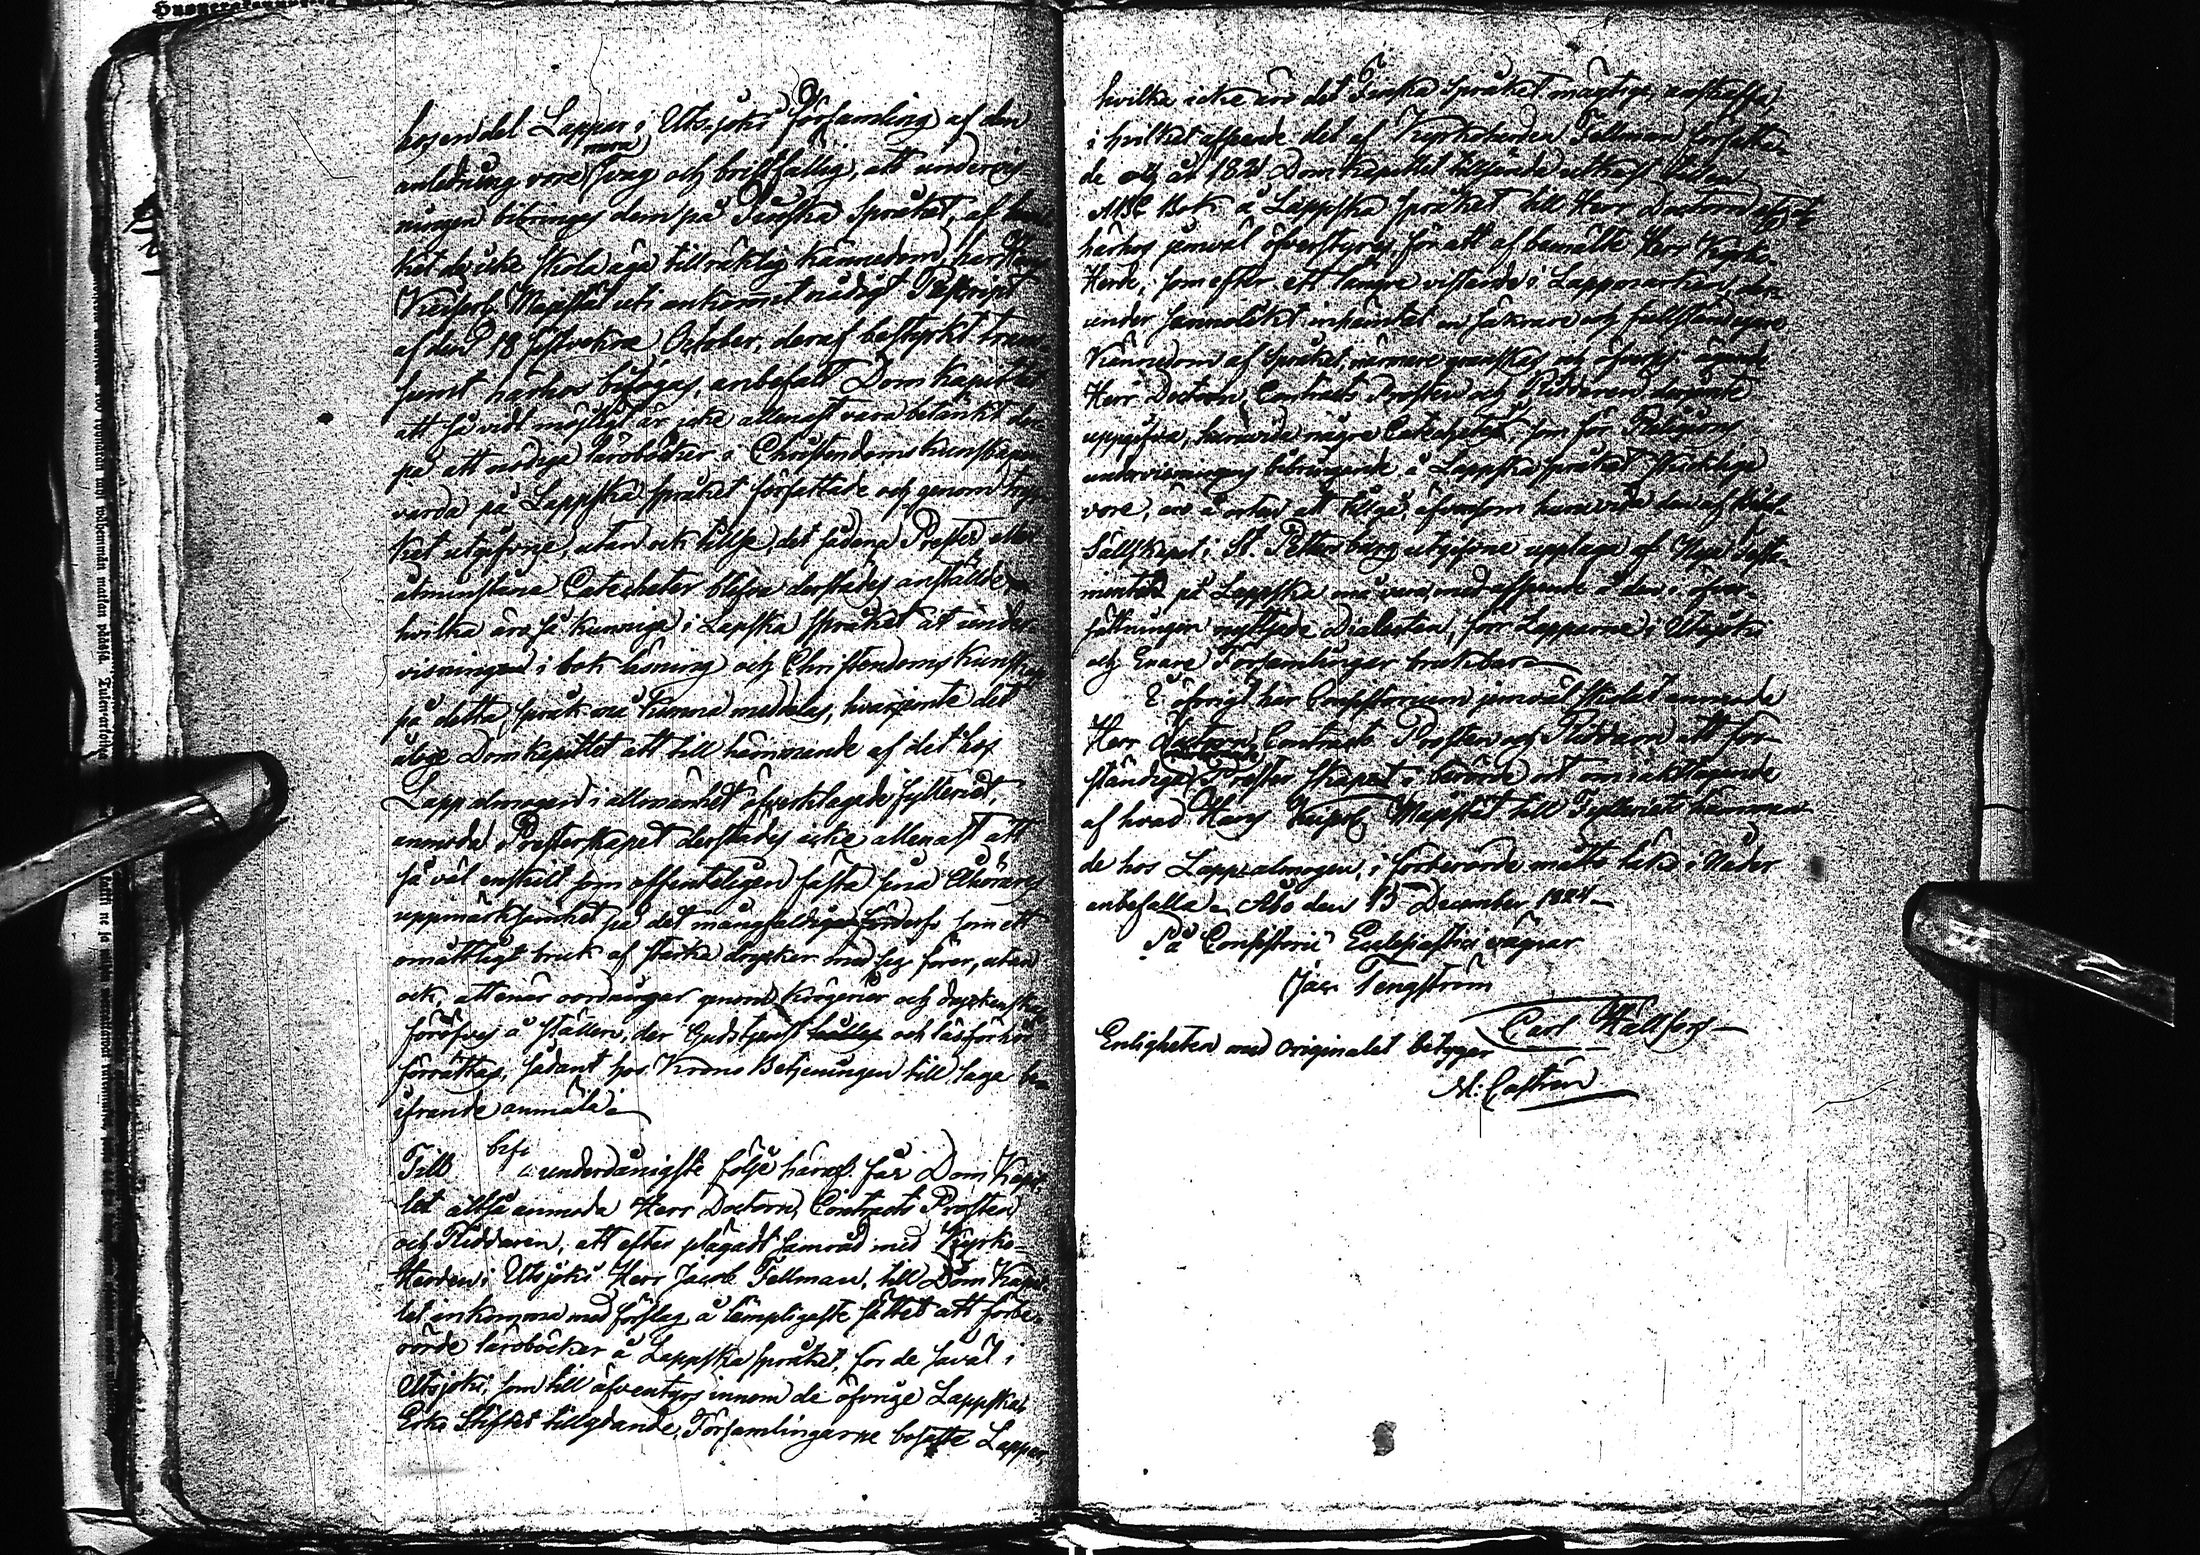 hos en del Lappar i Utsjoki Församling af den
anledning vore mera svag och bristfällig, att undervis-
ningen bibringes dem på Finska Språket, af hvil-
ket de icke skola äga tillräklig kännedom, har Hans
Keiserl. Majestät uti ankommet nådigt Rescript
af den 18 sistvekne October, deraf bestyrkt tran-
sumt härhos bifogas, anbefalt Domkapitlet
att så vidt möjligt är icke allenast vara betänkt der-
på att nödige läroböcker i Christendoms kunskapen
varda på Lappska språket författade och genom tryc-
ket utgifne, utan ock tillse, det sådana Prester eller
åtminstone Catecheter blifva derstädes anstälde
hvilka äro så kunnige i Lapska språket at under-
visningen i bok läsning och Christendoms kunskap
på detta språk må kunna meddelas, hvarjemte det
ålegge Domkapitlet att till hämmande af det hos
Lappalmogen i allmänhet öfverklagade fylleriet,
anmoda Presterskapet derstädes icke allenast att
så väl enskilt som offenteligen fästa sina Åhörares
uppmärksamhet på det mångfaldiga förderf, som ett
omåttligt bruk af starka drycker med sig förer, utan
ock, att när oordningar genom krögerier och dryckenskap
föröfvas å ställen, der Gudstjenst hålles och läsförhör
förrättas, sådant hos Krono Betjeningen till laga be-
ifrande anmäla.
Till underdånigste följe häraf får Dom Kapit-
let altså anmoda Herr Doctorn, Contracts Prosten
och Riddaren, att efter plägadt samråd med Kyrko-
Herden i Utsjoki Herr Jacob Fellman, till Dom Kapit-
let inkomma med förslag å lämpligaste sättet att förbe-
rörde läroböcker å Lappska språket, för de såväl i
Utsjoki, som till äfventyrs innom de öfrige Lappska
Erke Stiftet tillydande Församlingarne bosatte Lappar,
hvilka icke äro det Finska språket mägtige, anskaffa
i hvilket afseende det af Kyrkoherden Fellman författa-
de och år 1821 Domkapitlet tillsände utkast till en
ABC Bok å Lappska språket till Herr Doctorn etc etc
härhos jemväl öfverstyres, för att af bemälte Herr Kyrko-
Herde, som efter ett längre vistande i Lappmarken, der-
under sannolikt inhämtat en säkrare och fullständigare
Kännedom af språket, närmare granskas och öfverses; ägande
Herr Doctorn, Contracts Prosten och Riddaren derjemte
uppgifva, huruvida några Catecheter som för Religions
undervisningens bibringande å Lappska språket skicklige
vore, äro å orten att tillgå, äfvensom huruvida den af Bibel-
Sällskapet i St. Petersburg utgifne upplaga af Nya Testa-
mentet på Lappska må vara, med afseende å den i öfver-
sättningen nyttjade Dialecten, for Lapparne i Utsjoki
och Enare Församlingar brukbar.
I öfrigt har Consistorium jemväl skolat anmoda
Herr Doctorn, Contracts Prosten och Riddaren att för-
ständiga Presterskapet i berörde ort om iakttagande
af hvad Hans Keiserl. Majestät till Fylleriets hämman-
de hos Lappalmogen, i förberörde måtto täkts i Nåder
anbefalla. Åbo den 15 December 1824.
På Consistorii Ecclesiastici vägnar
Jac. Tengström
Carl Hällfors
Enligheten med originalet betyger
M: Castrén